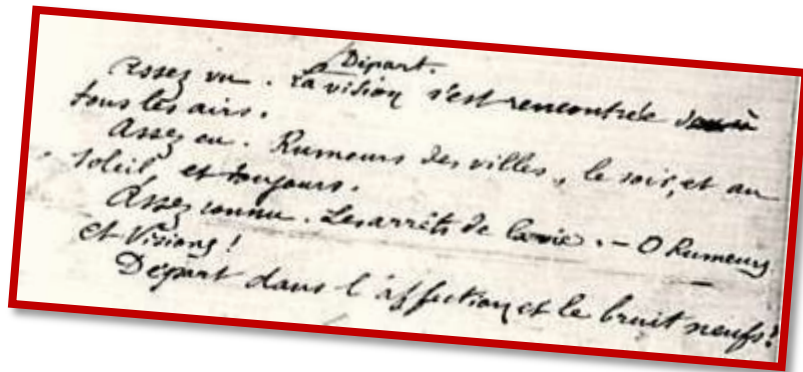 Départ.
Assez vu. La vision s'est rencontrée à
tous les airs.
Assez eu. Rumeurs des villes, le soir, et au
soleil, et toujours.
Assez connu. Les arrêts de la vie. — O Rumeurs
et Visions!
Départ dans l'affection et le bruit neufs!